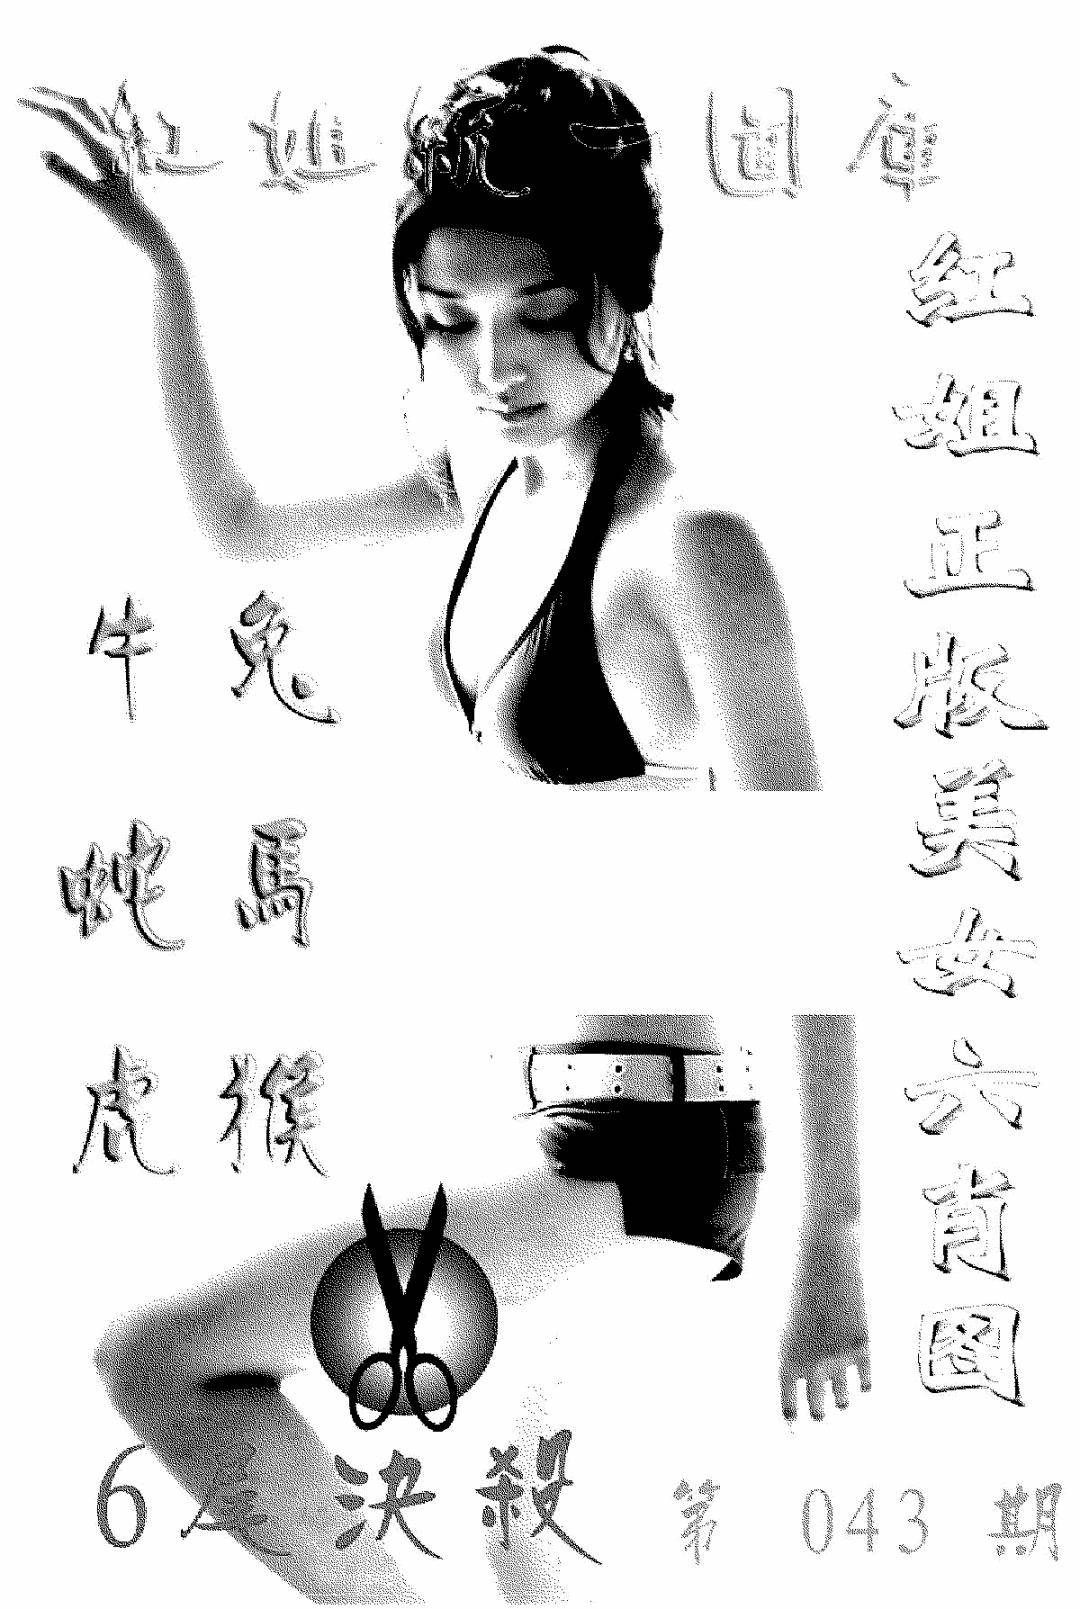 紅姐統一圖庫
紅姐正版美女六肖图
牛 兔
蛇 馬
虎 猴
6尾決殺
第 043 期